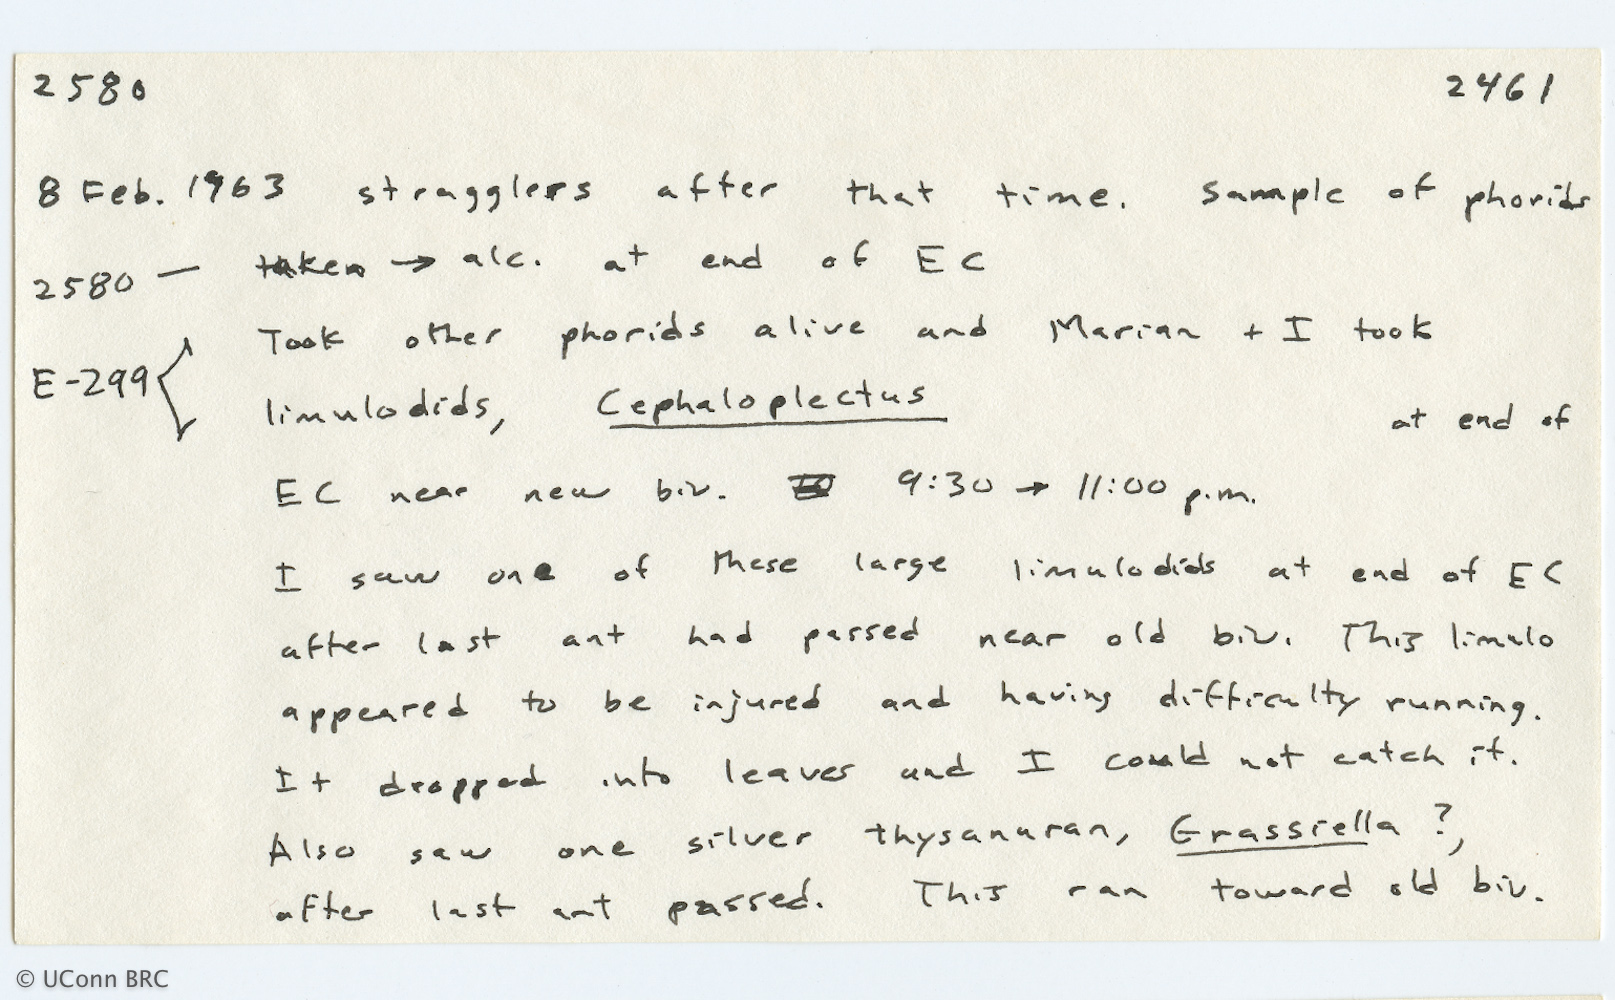 2580 2461
8 Feb. 1963 stragglers after that time. Sample of phorids
2580 — taken → alc. at end of EC
Took other phorids alive and Marian + I took
E-299 { limulodids, Cephaloplectus at end of
EC near new biv. 9:30 → 11:00 p.m.
I saw one of these large limulodids at end of EC
after last ant had passed near old biv. This limulo
appeared to be injured and having difficulty running.
It dropped into leaves and I could not catch it.
Also saw one silver thysanuran, Grassiella ?,
after last ant passed. This ran toward old biv.
© UConn BRC